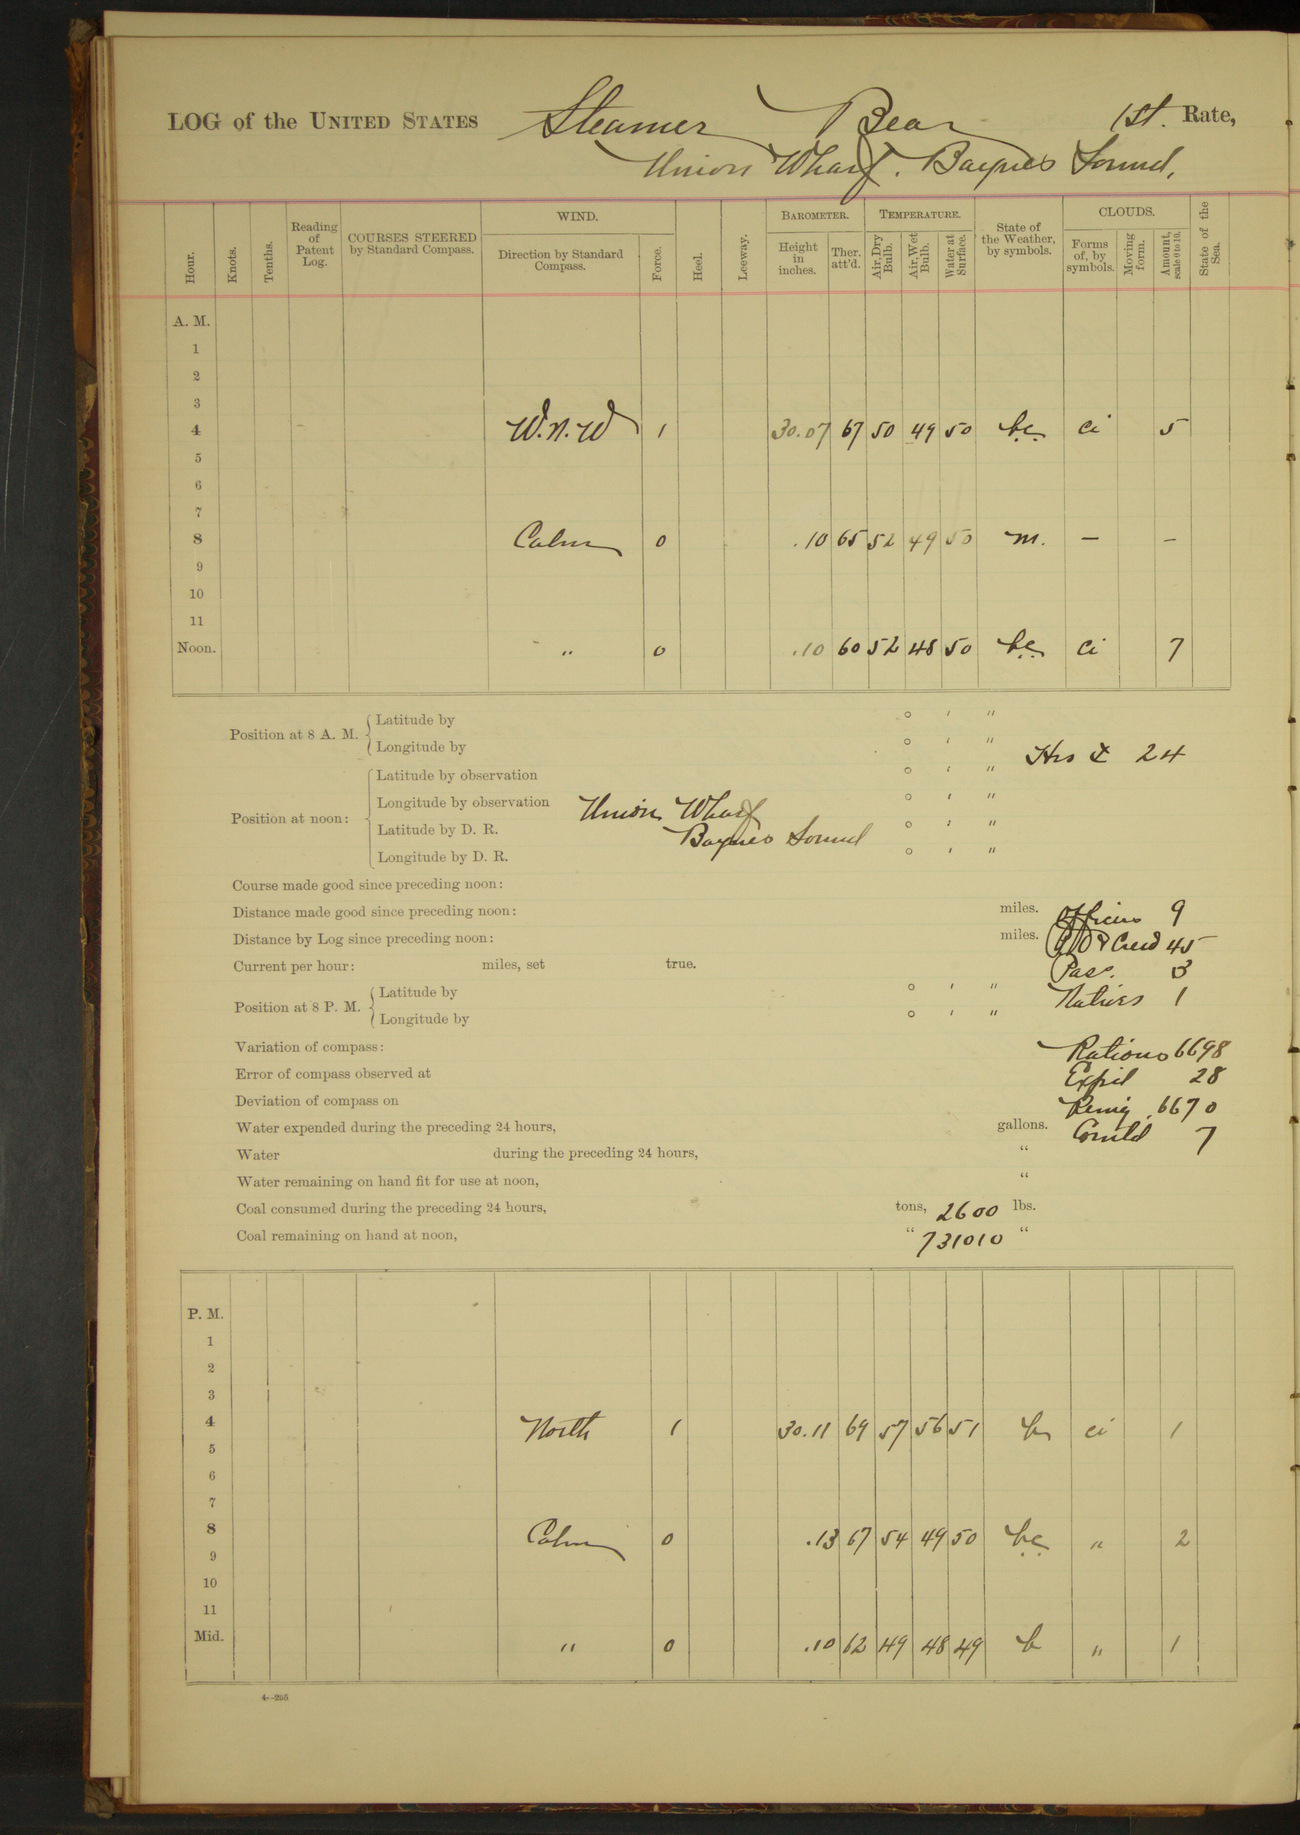 LOG of the UNITED STATES Steamer Bear 1st. Rate,
Union Wharf. Baynes Sound,
Hour. Knots. Tenths. Reading of Patent Log. COURSES STEERED by Standard Compass. WIND. Direction by Standard Compass. Force. Heel. Leeway. BAROMETER. Height in inches. Ther. att'd. TEMPERATURE. Air, Dry Bulb. Air, Wet Bulb. Water at Surface. State of the Weather, by symbols. CLOUDS. Forms of, by symbols. Moving form. Amount, scale 0 to 10. State of the Sea.
A. M.
1
2
3
4 W.N.W 1 30.07 67 50 49 50 b.c. ci 5
5
6
7
8 Calm 0 .10 65 52 49 50 m. — –
9
10
11
Noon. " 0 .10 60 52 48 50 b.c. ci 7
Position at 8 A. M. Latitude by ° ' "
Longitude by ° ' "
Hrs & 24
Position at noon: Latitude by observation ° ' "
Longitude by observation Union Wharf ° ' "
Latitude by D. R. Baynes Sound ° ' "
Longitude by D. R. ° ' "
Course made good since preceding noon:
Distance made good since preceding noon: miles. Officers 9
Distance by Log since preceding noon: miles. P.O & Crew 45
Current per hour: miles, set true. Pass. 3
Position at 8 P. M. Latitude by ° ' " Natives 1
Longitude by ° ' "
Variation of compass: Rations 6698
Error of compass observed at Expd 28
Deviation of compass on Remg. 6670
Water expended during the preceding 24 hours, gallons. Comtd 7
Water during the preceding 24 hours, "
Water remaining on hand fit for use at noon, "
Coal consumed during the preceding 24 hours, tons, 2600 lbs.
Coal remaining on hand at noon, " 731010 "
P. M.
1
2
3
4 North 1 30.11 69 57 56 51 b ci 1
5
6
7
8 Calm 0 .13 67 54 49 50 b.c. " 2
9
10
11
Mid. " 0 .10 62 49 48 49 b " 1
4--205